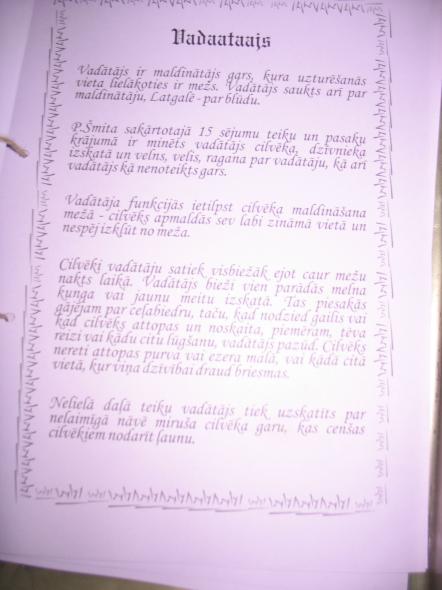 Vadaataajs
Vadātājs ir maldinātājs gars, kura uzturēšanās
vieta lielākoties ir mežs. Vadātājs saukts arī par
maldinātāju, Latgalē - par blūdu.
P.Šmita sakārtotajā 15 sējumu teiku un pasaku
krājumā ir minēts vadātājs cilvēka, dzīvnieka
izskatā un velns, velis, ragana par vadātāju, kā arī
vadātājs kā nenoteikts gars.
Vadātāja funkcijās ietilpst cilvēka maldināšana
mežā - cilvēks apmaldās sev labi zināmā vietā un
nespēj izkļūt no meža.
Cilvēki vadātāju satiek visbiežāk ejot caur mežu
nakts laikā. Vadātājs bieži vien parādās melna
kunga vai jaunu meitu izskatā. Tas piesakās
gājējam par ceļabiedru, taču, kad nodzied gailis vai
kad cilvēks attopas un noskaita, piemēram, tēva
reizi vai kādu citu lūgšanu, vadātājs pazūd. Cilvēks
nereti attopas purva vai ezera malā, vai kādā citā
vietā, kur viņa dzīvībai draud briesmas.
Nelielā daļā teiku vadātājs tiek uzskatīts par
nelaimīgā nāvē miruša cilvēka garu, kas cenšas
cilvēkiem nodarīt ļaunu.